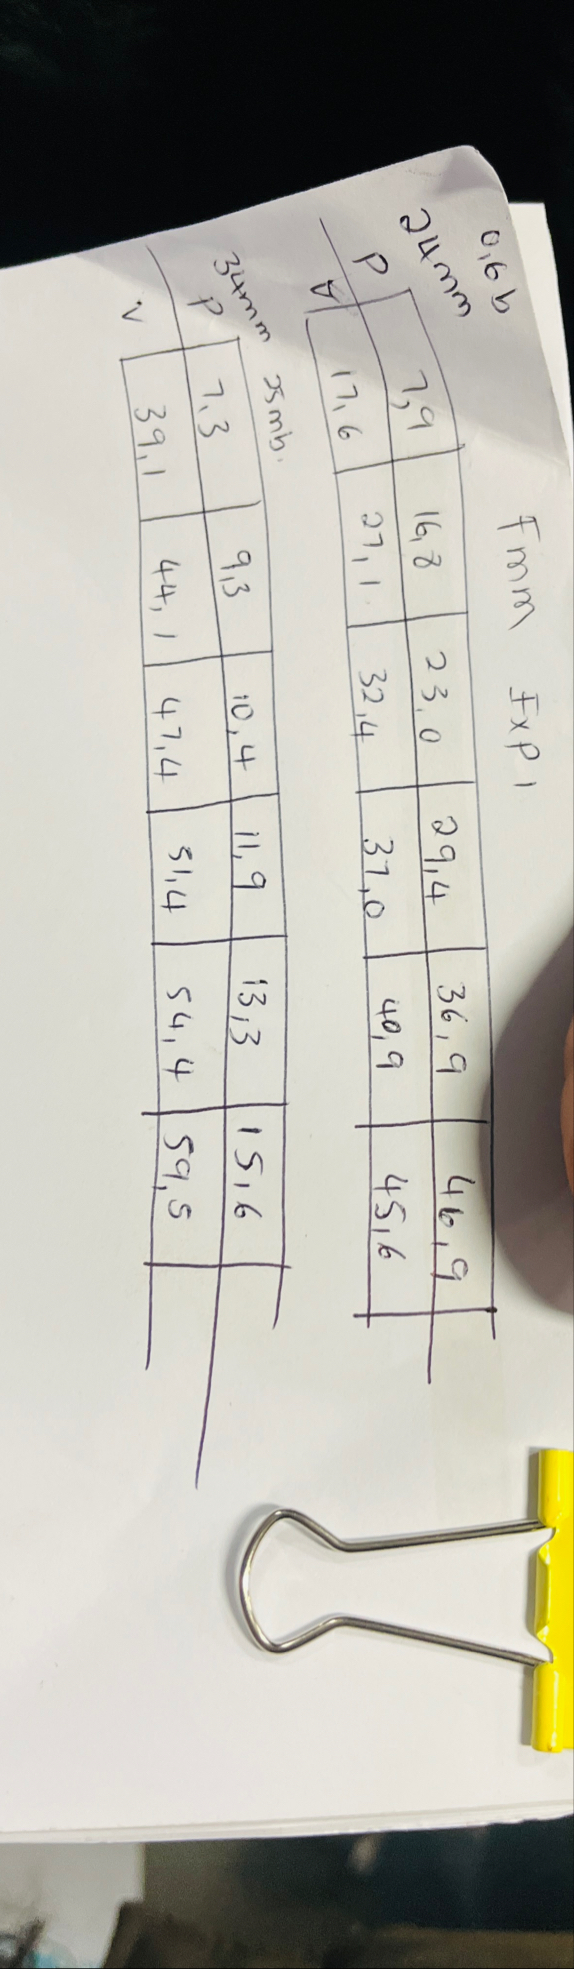 Fmm Exp 1
24mm
P 7,9 16,8 23,0 29,4 36,9 46,9
17,6 27,1 32,4 37,0 40,9 45,6
34mm 25mb.
P 7,3 9,3 10,4 11,9 13,3 15,6
V 39,1 44,1 47,4 51,4 54,4 59,5